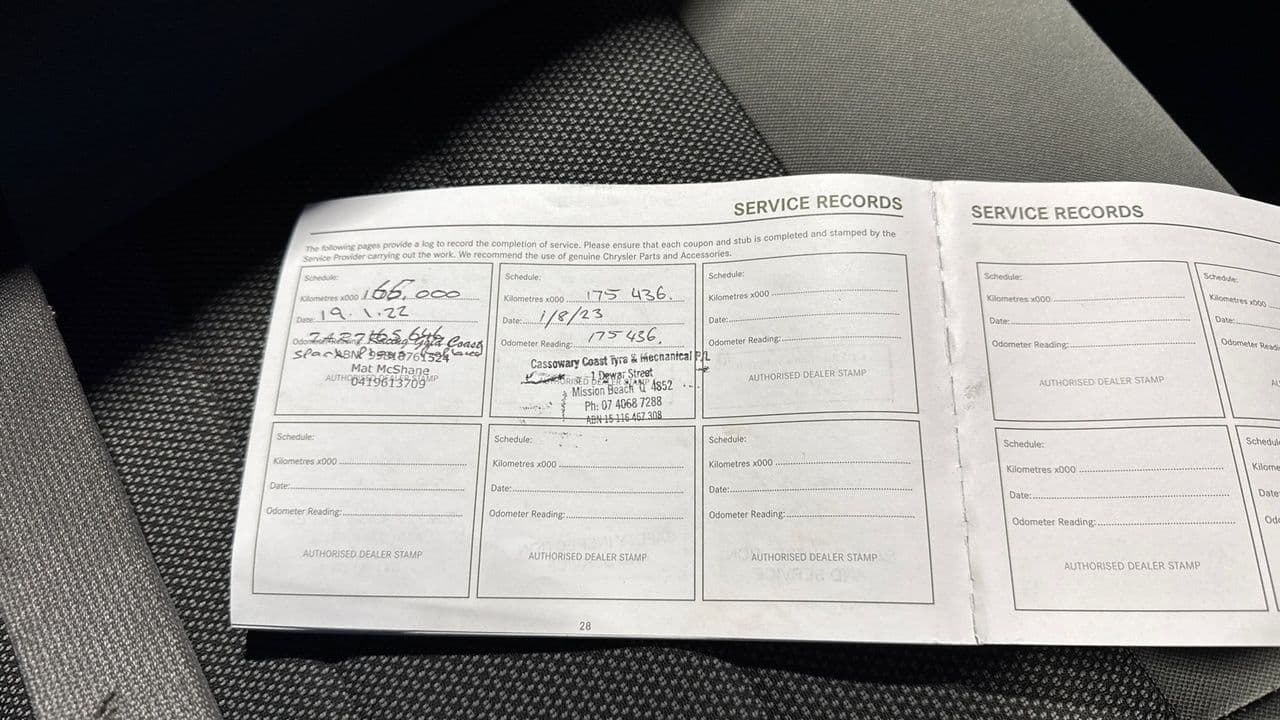 SERVICE RECORDS
The following pages provide a log to record the completion of service. Please ensure that each coupon and stub is completed and stamped by the
Service Provider carrying out the work. We recommend the use of genuine Chrysler Parts and Accessories.
Schedule:
Kilometres x000 166,000
Date: 19.1.22
165,646
Coast
ABN
Mat McShane
AUTHORISED DEALER STAMP
0419613709
Schedule:
Kilometres x000 175 436.
Date: 1/8/23
Odometer Reading: 175 436.
Cassowary Coast Tyre & Mechanical P/L
1 Dewar Street
AUTHORISED DEALER STAMP
Mission Beach Q 4852
Ph: 07 4068 7288
ABN 15 116 467 308
Schedule:
Kilometres x000
Date:
Odometer Reading:
AUTHORISED DEALER STAMP
Schedule:
Kilometres x000
Date:
Odometer Reading:
AUTHORISED DEALER STAMP
Schedule:
Kilometres x000
Date:
Odometer Reading:
AUTHORISED DEALER STAMP
Schedule:
Kilometres x000
Date:
Odometer Reading:
AUTHORISED DEALER STAMP
28
SERVICE RECORDS
Schedule:
Kilometres x000
Date:
Odometer Reading:
AUTHORISED DEALER STAMP
Schedule:
Kilometres x000
Date:
Odometer Readi
A
Schedule:
Kilometres x000
Date:
Odometer Reading:
AUTHORISED DEALER STAMP
Schedule
Kilome
Date:
Od